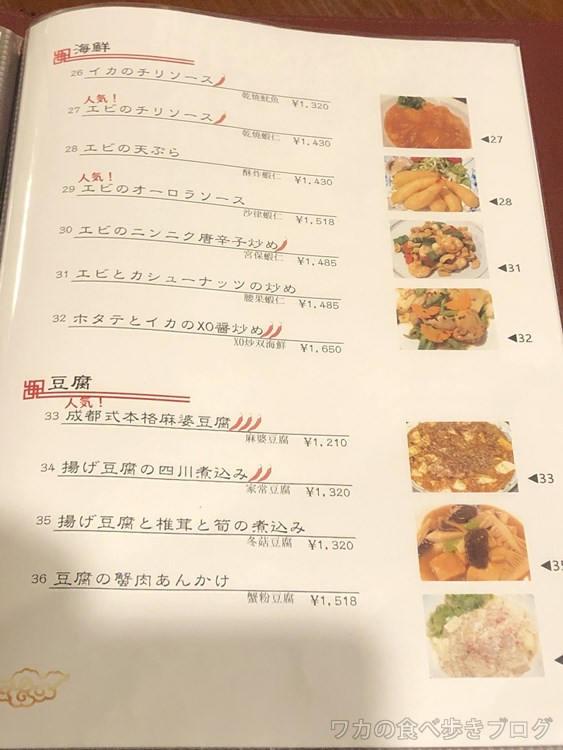 海鮮
26 イカのチリソース
乾焼魷魚 ¥1.320
人気！
27 エビのチリソース
乾焼蝦仁 ¥1.430
28 エビの天ぷら
酥炸蝦仁 ¥1.430
人気！
29 エビのオーロラソース
沙律蝦仁 ¥1.518
30 エビのニンニク唐辛子炒め
宮保蝦仁 ¥1.485
31 エビとカシューナッツの炒め
腰果蝦仁 ¥1.485
32 ホタテとイカのXO醤炒め
XO炒双海鮮 ¥1.650
◀27
◀28
◀31
◀32
豆腐
人気！
33 成都式本格麻婆豆腐
麻婆豆腐 ¥1.210
34 揚げ豆腐の四川煮込み
家常豆腐 ¥1,320
35 揚げ豆腐と椎茸と筍の煮込み
冬菇豆腐 ¥1.320
36 豆腐の蟹肉あんかけ
蟹粉豆腐 ¥1,518
◀33
◀35
◀
ワカの食べ歩きブログ